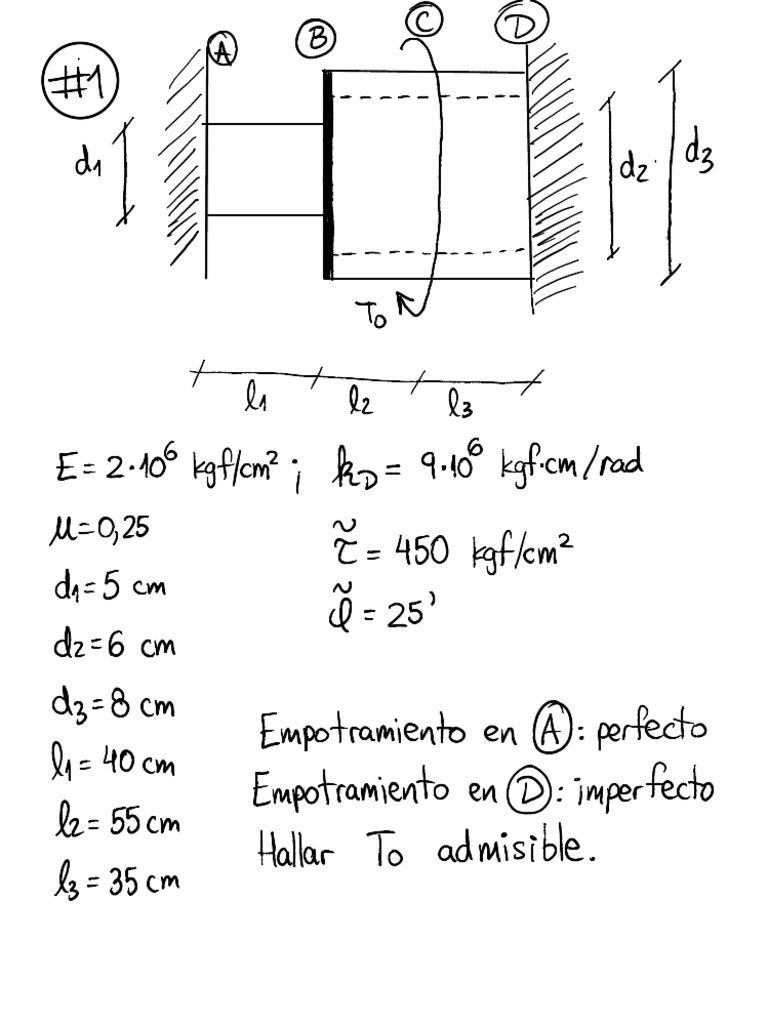 #1
A B C D
d1
d2
d3
To
l1 l2 l3
E = 2·10⁶ kgf/cm² ; kD = 9·10⁶ kgf·cm/rad
μ=0,25
τ̃ = 450 kgf/cm²
d1=5 cm
φ̃ = 25'
d2=6 cm
d3=8 cm
l1=40 cm
l2=55 cm
l3=35 cm
Empotramiento en A: perfecto
Empotramiento en D: imperfecto
Hallar To admisible.